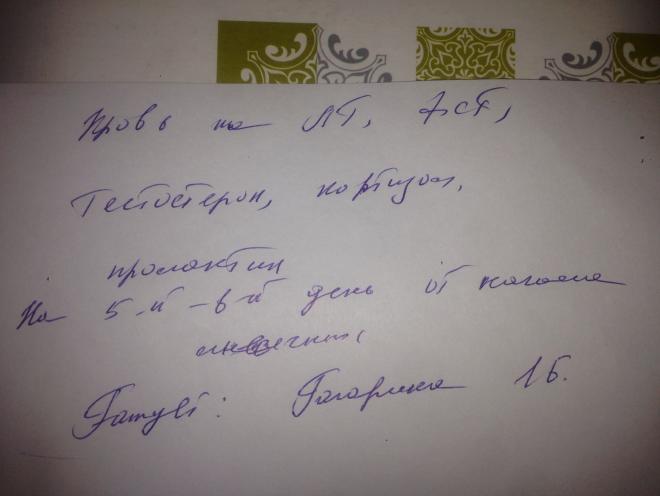 Кровь на ЛГ, ФСГ,
Тестостерон, кортизол,
пролактин
На 5-й-6й день от начала
месячных
Гагарина 1Б.